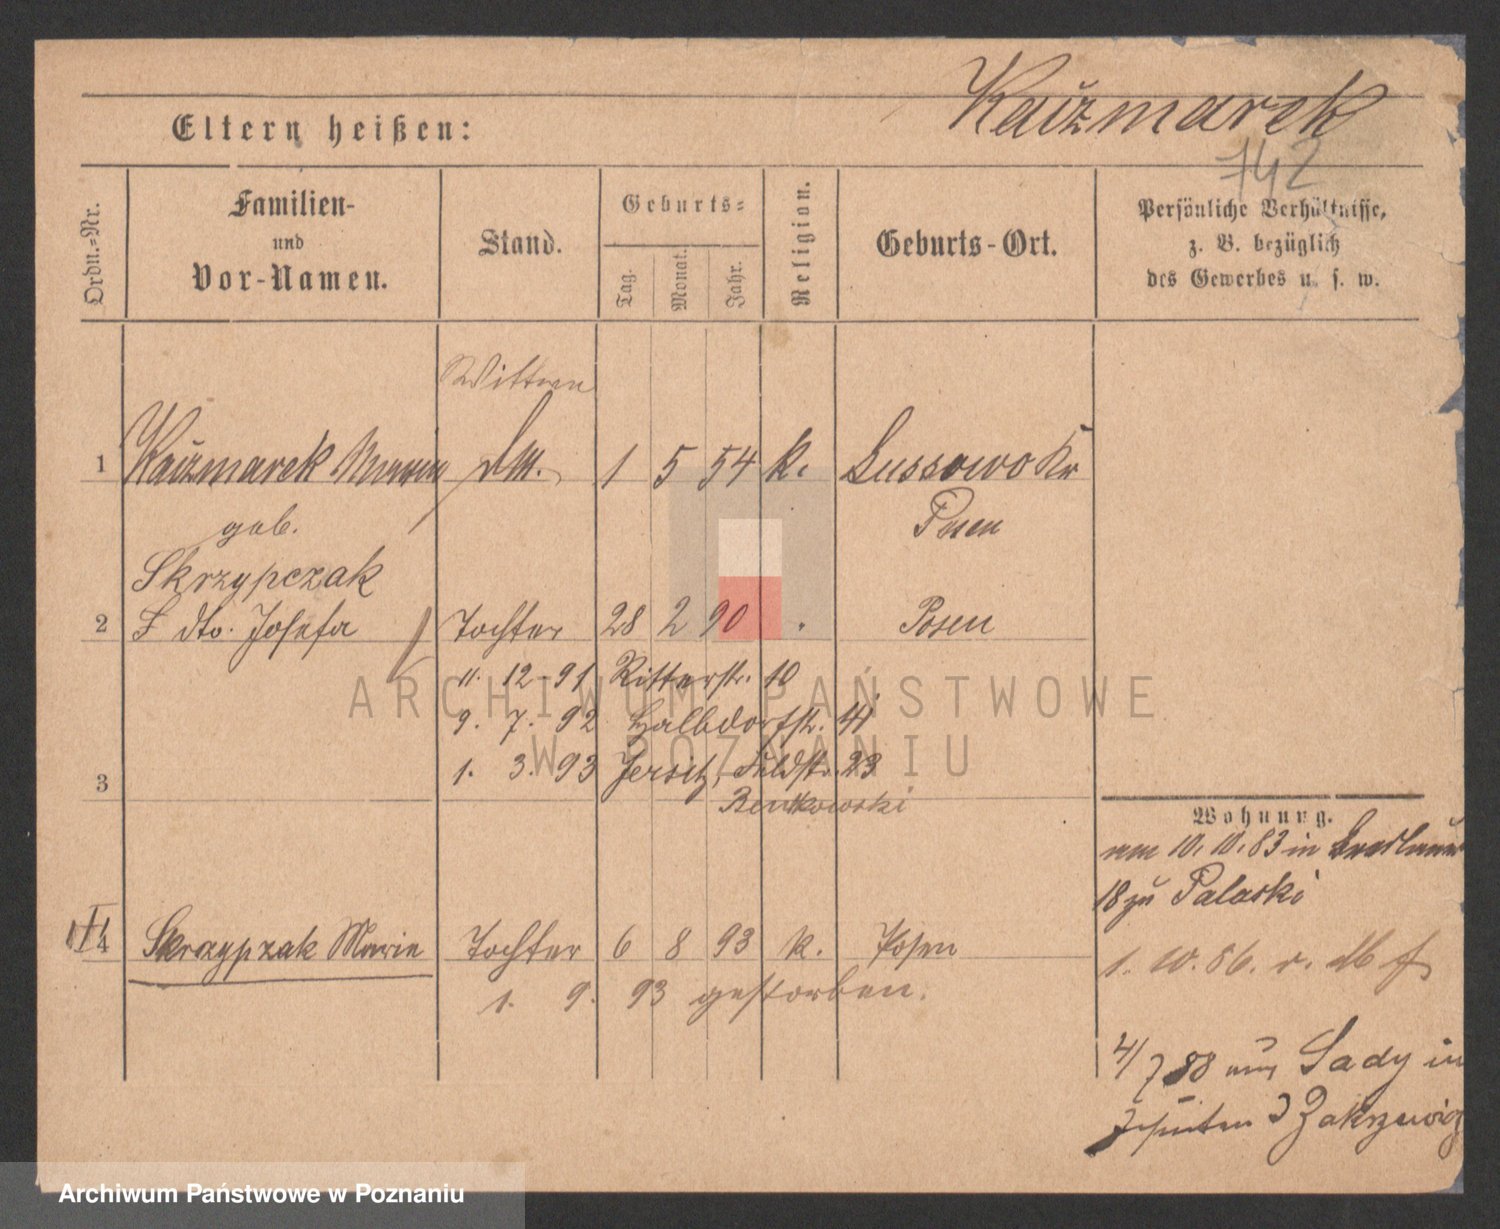 Kaczmarek
Eltern heißen:
742
Ordn.=Nr.
Familien-
und
Vor-Namen.
Stand.
Geburts=
Tag.
Monat.
Jahr.
Religion.
Geburts-Ort.
Persönliche Verhältnisse,
z. B. bezüglich
des Gewerbes u. s. w.
Wittwe
1 Kaczmarek 1 5 54 k. Lussowo Kr
geb. Posen
Skrzypczak
2 dto. Josefa Tochter 28 2 90 Posen
11. 12-91 Ritterstr. 10
9. 7. 92 Halbdorfstr.
3 1. 3. 93 Jersitz, Feldstr. 23
Renkowski
Wohnung.
10. 10. 83 in
18 zu Palaski
4 Skrzypzak Marie Tochter 6 8 93 k. Posen
1. 10. 86.
1. 9. 93 gestorben.
4/7 88 aus Sady in
ARCHIWUM PAŃSTWOWE
W POZNANIU
Archiwum Państwowe w Poznaniu